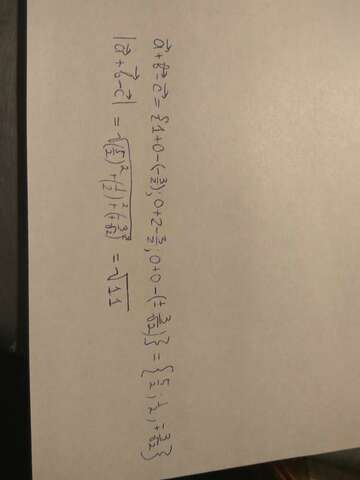 a⃗+b⃗-c⃗ = {1+0-(-3/2); 0+2-3/2; 0+0-(±3/√2)} = {5/2; 1/2; ∓3/√2}
|a⃗+b⃗-c⃗| = √((5/2)²+(1/2)²+(∓3/√2)²) = √11